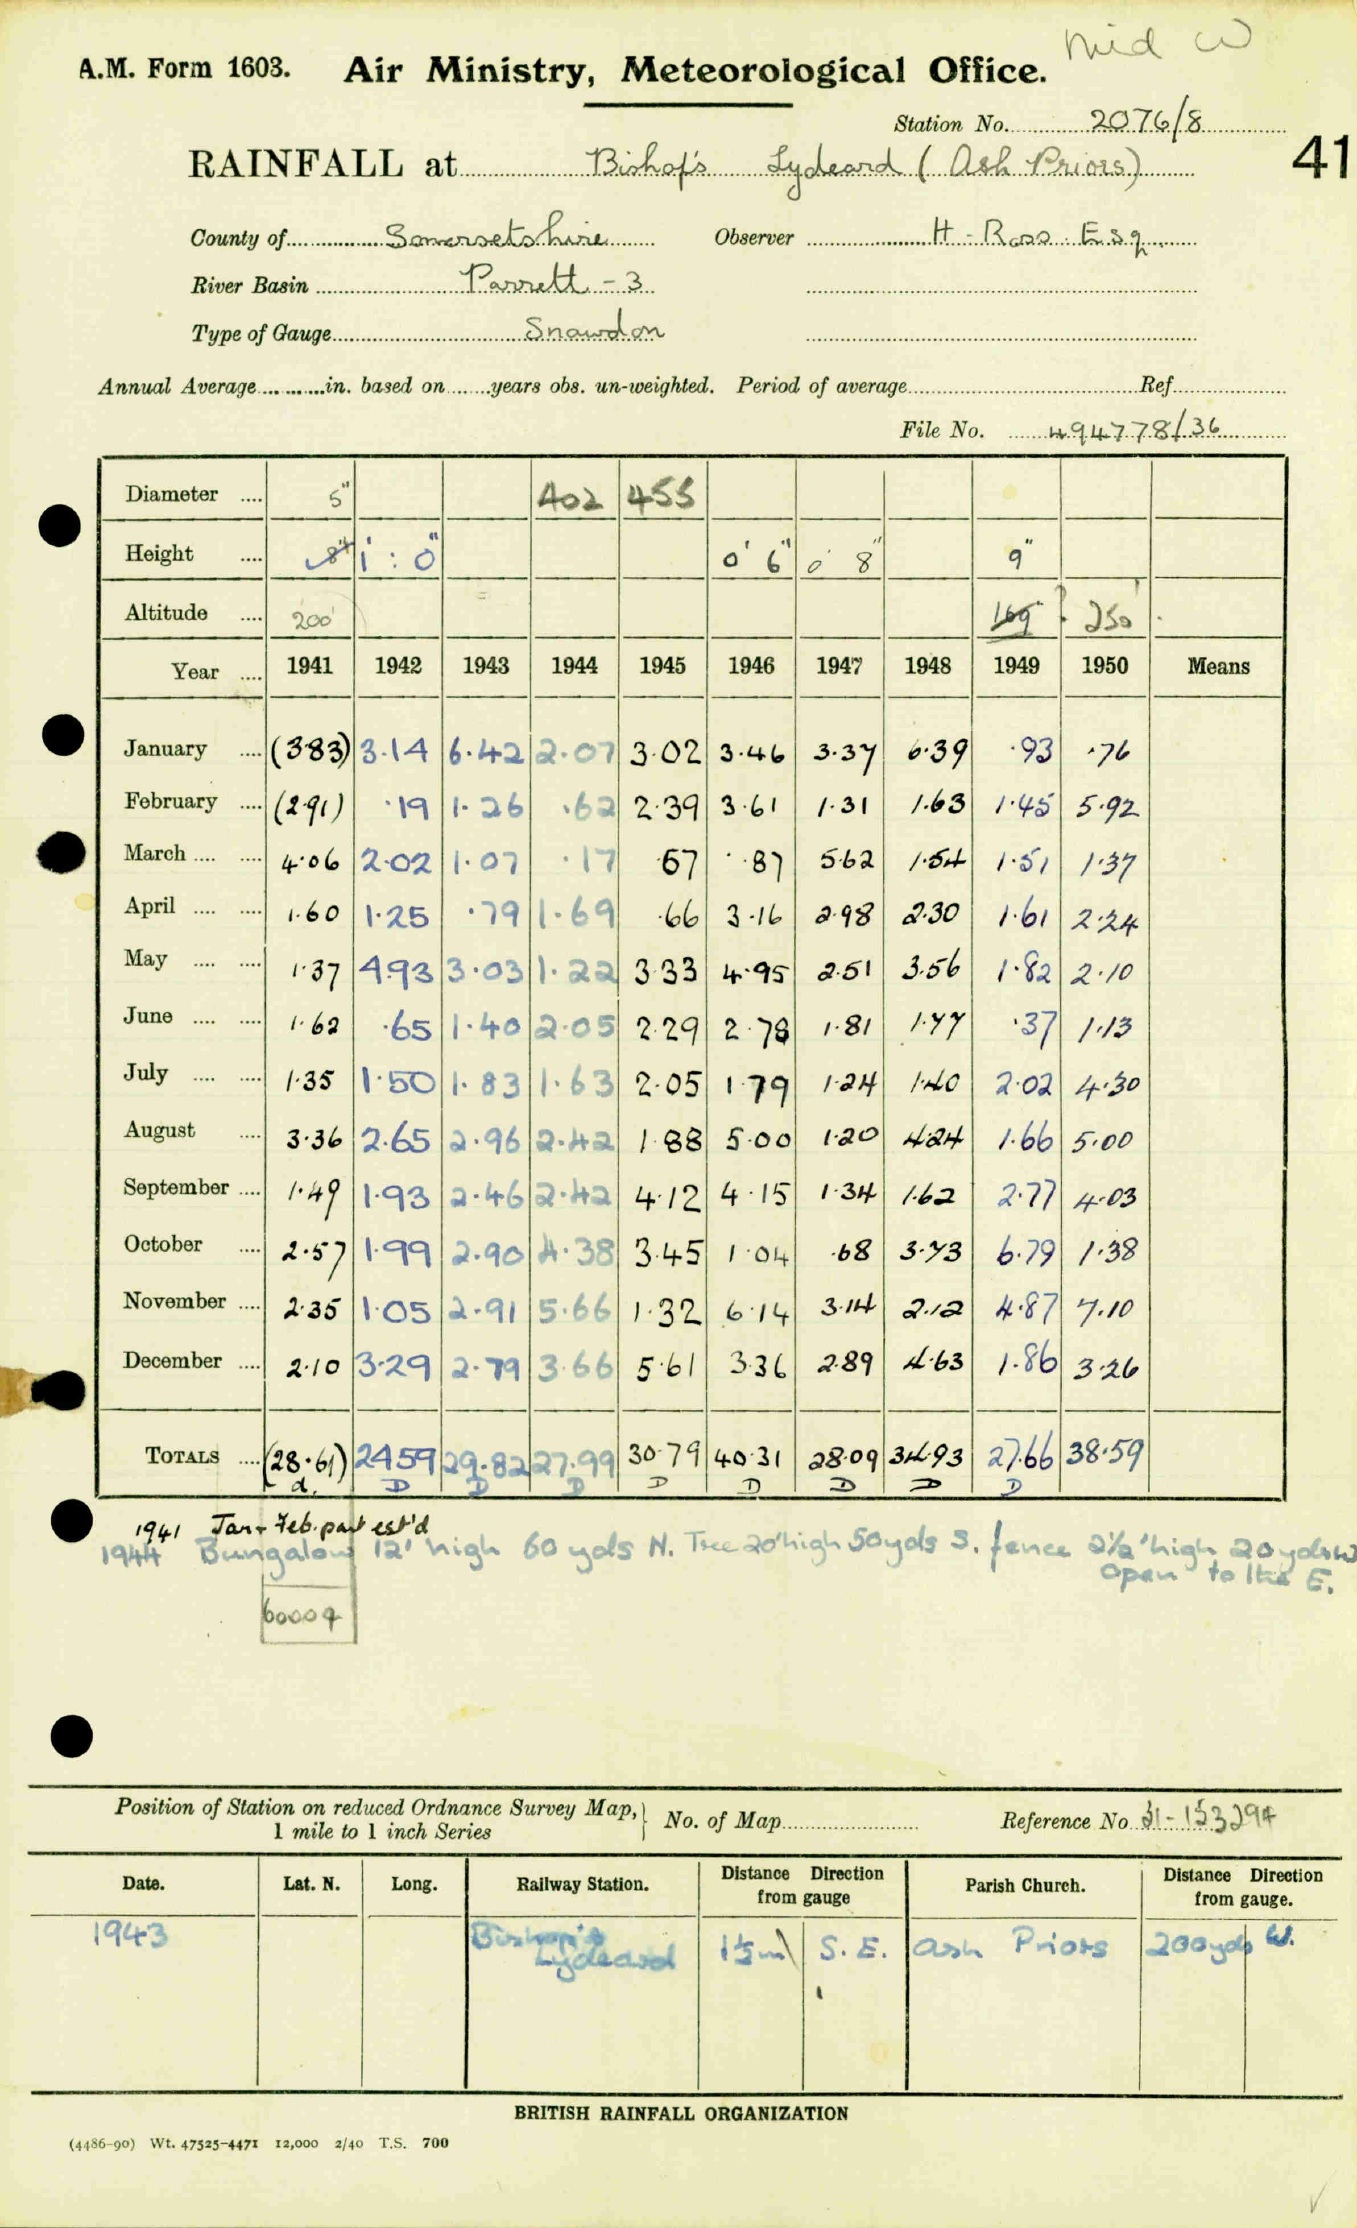 mid W
A.M. Form 1603. Air Ministry, Meteorological Office.
Station No. 2076/8
41
RAINFALL at Bishop's Lydeard (Ash Priors)
County of Somersetshire Observer H. Ross Esq.
River Basin Parrett - 3
Type of Gauge Snowdon
Annual Average in. based on years obs. un-weighted. Period of average Ref.
File No. 494778/36
Diameter 5" 402 455
Height 8" 1' : 0" 0' 6" 0' 8" 9"
Altitude 200' 169' ? 250'
Year 1941 1942 1943 1944 1945 1946 1947 1948 1949 1950 Means
January (3.83) 3.14 6.42 2.07 3.02 3.46 3.37 6.39 .93 .76
February (2.91) .19 1.26 .62 2.39 3.61 1.31 1.63 1.45 5.92
March 4.06 2.02 1.07 .17 .67 .87 5.62 1.54 1.51 1.37
April 1.60 1.25 .79 1.69 .66 3.16 2.98 2.30 1.61 2.24
May 1.37 4.93 3.03 1.22 3.33 4.95 2.51 3.56 1.82 2.10
June 1.62 .65 1.40 2.05 2.29 2.78 1.81 1.77 .37 1.13
July 1.35 1.50 1.83 1.63 2.05 1.79 1.24 1.40 2.02 4.30
August 3.36 2.65 2.96 2.42 1.88 5.00 1.20 4.24 1.66 5.00
September 1.49 1.93 2.46 2.42 4.12 4.15 1.34 1.62 2.77 4.03
October 2.57 1.99 2.90 4.38 3.45 1.04 .68 3.73 6.79 1.38
November 2.35 1.05 2.91 5.66 1.32 6.14 3.14 2.12 4.87 7.10
December 2.10 3.29 2.79 3.66 5.61 3.36 2.89 4.63 1.86 3.26
TOTALS (28.61) 24.59 29.82 27.99 30.79 40.31 28.09 34.93 27.66 38.59
d. D D D D D D D D
1941 Jan + Feb. part est'd
1944 Bungalow 12' high 60 yds N. Tree 20' high 50yds S. fence 2½' high 20 yds W
Open to the E.
60009
Position of Station on reduced Ordnance Survey Map, 1 mile to 1 inch Series No. of Map Reference No 31-153294
Date. Lat. N. Long. Railway Station. Distance Direction from gauge Parish Church. Distance Direction from gauge.
1943 Bishop's Lydeard 1½ml S. E. Ash Priors 200yds W.
BRITISH RAINFALL ORGANIZATION
(4486-90) Wt. 47525-4471 12,000 2/40 T.S. 700